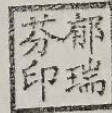 郁瑞
芬印